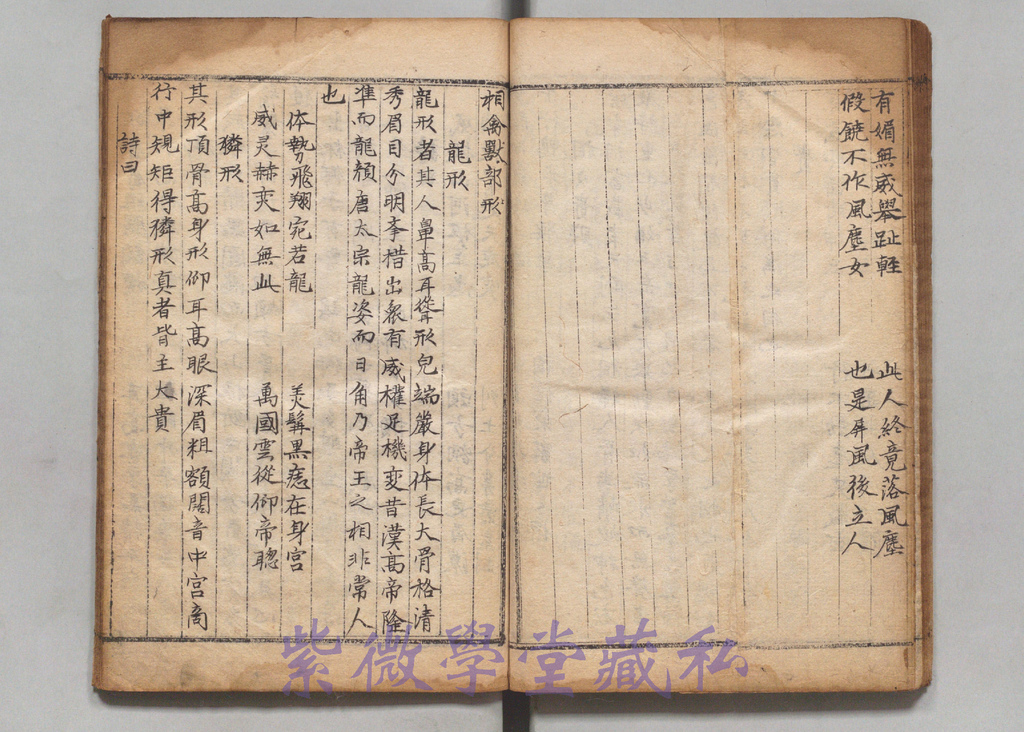 有媚無威舉趾輕　此人終竟落風塵
假饒不作風塵女　也是屏風後立人
相禽獸部形
龍形
龍形者其人鼻高耳聳形皃端嚴身体長大骨格清
秀眉目分明李楷出衆有威權足機变昔漢高帝隆
準而龍顏唐太宗龍姿而日角乃帝王之相非常人
也
体勢飛翔宛若龍　美髯黒痣在身宫
威灵赫奕如無此　萬國雲從仰帝聰
獜形
其形頂骨高身形仰耳高眼深眉粗額闊音中宫商
行中規矩得獜形真者皆主大貴
詩曰
紫微學堂藏私